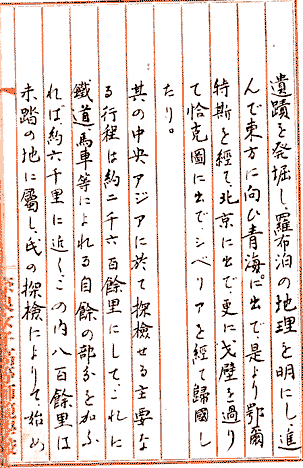 遺蹟を発掘し羅布泊の地理を明にし、進
んで東方に向ひ青海に出で是より鄂爾
特斯を經て、北京に出で、更に戈壁を過り
て恰克圖に出で、シベリアを經て歸國し
たり。
其の中央アジアに於て探檢せる主要な
る行程は約二千六百餘里にして、これに
鐵道馬車等によれる自餘の部分を加ふ
れば、約六千里に近く、この内八百餘里は
未踏の地に屬し、氏の探檢によりて始め